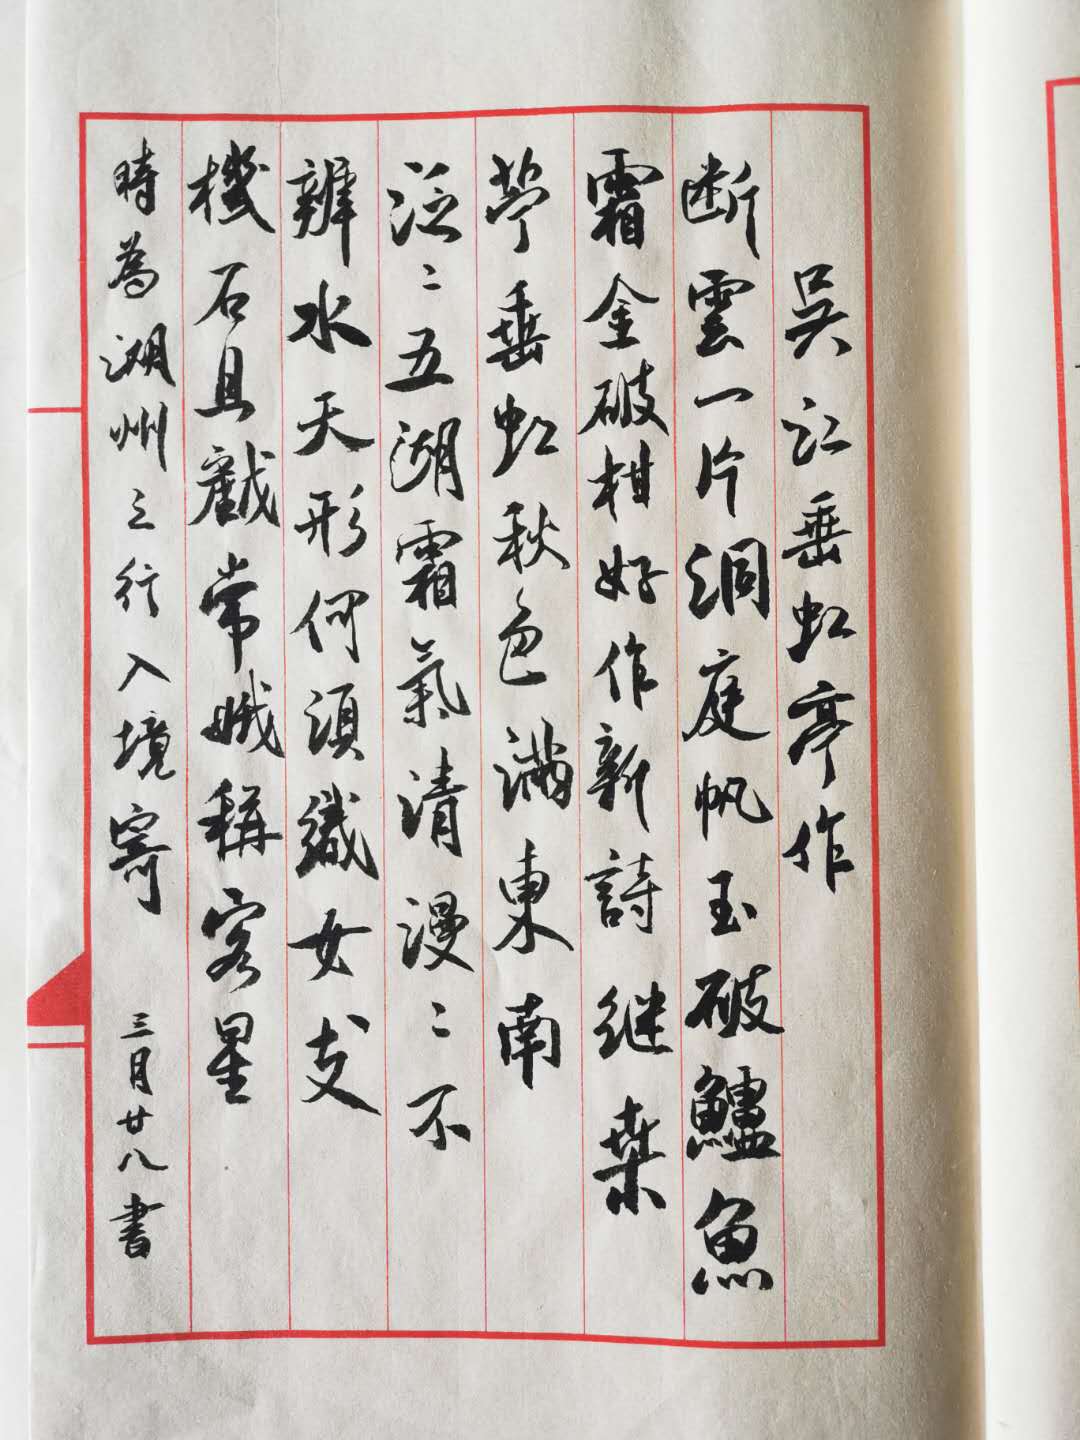 吳江垂虹亭作
断雲一片洞庭帆玉破鱸魚
霜金破柑好作新詩继桒
苧垂虹秋色满東南
泛〻五湖霜氣清漫〻不
辨水天形何須織女支
機石且戲常娥稱客星
時為湖州之行入境寄
三月廿八書